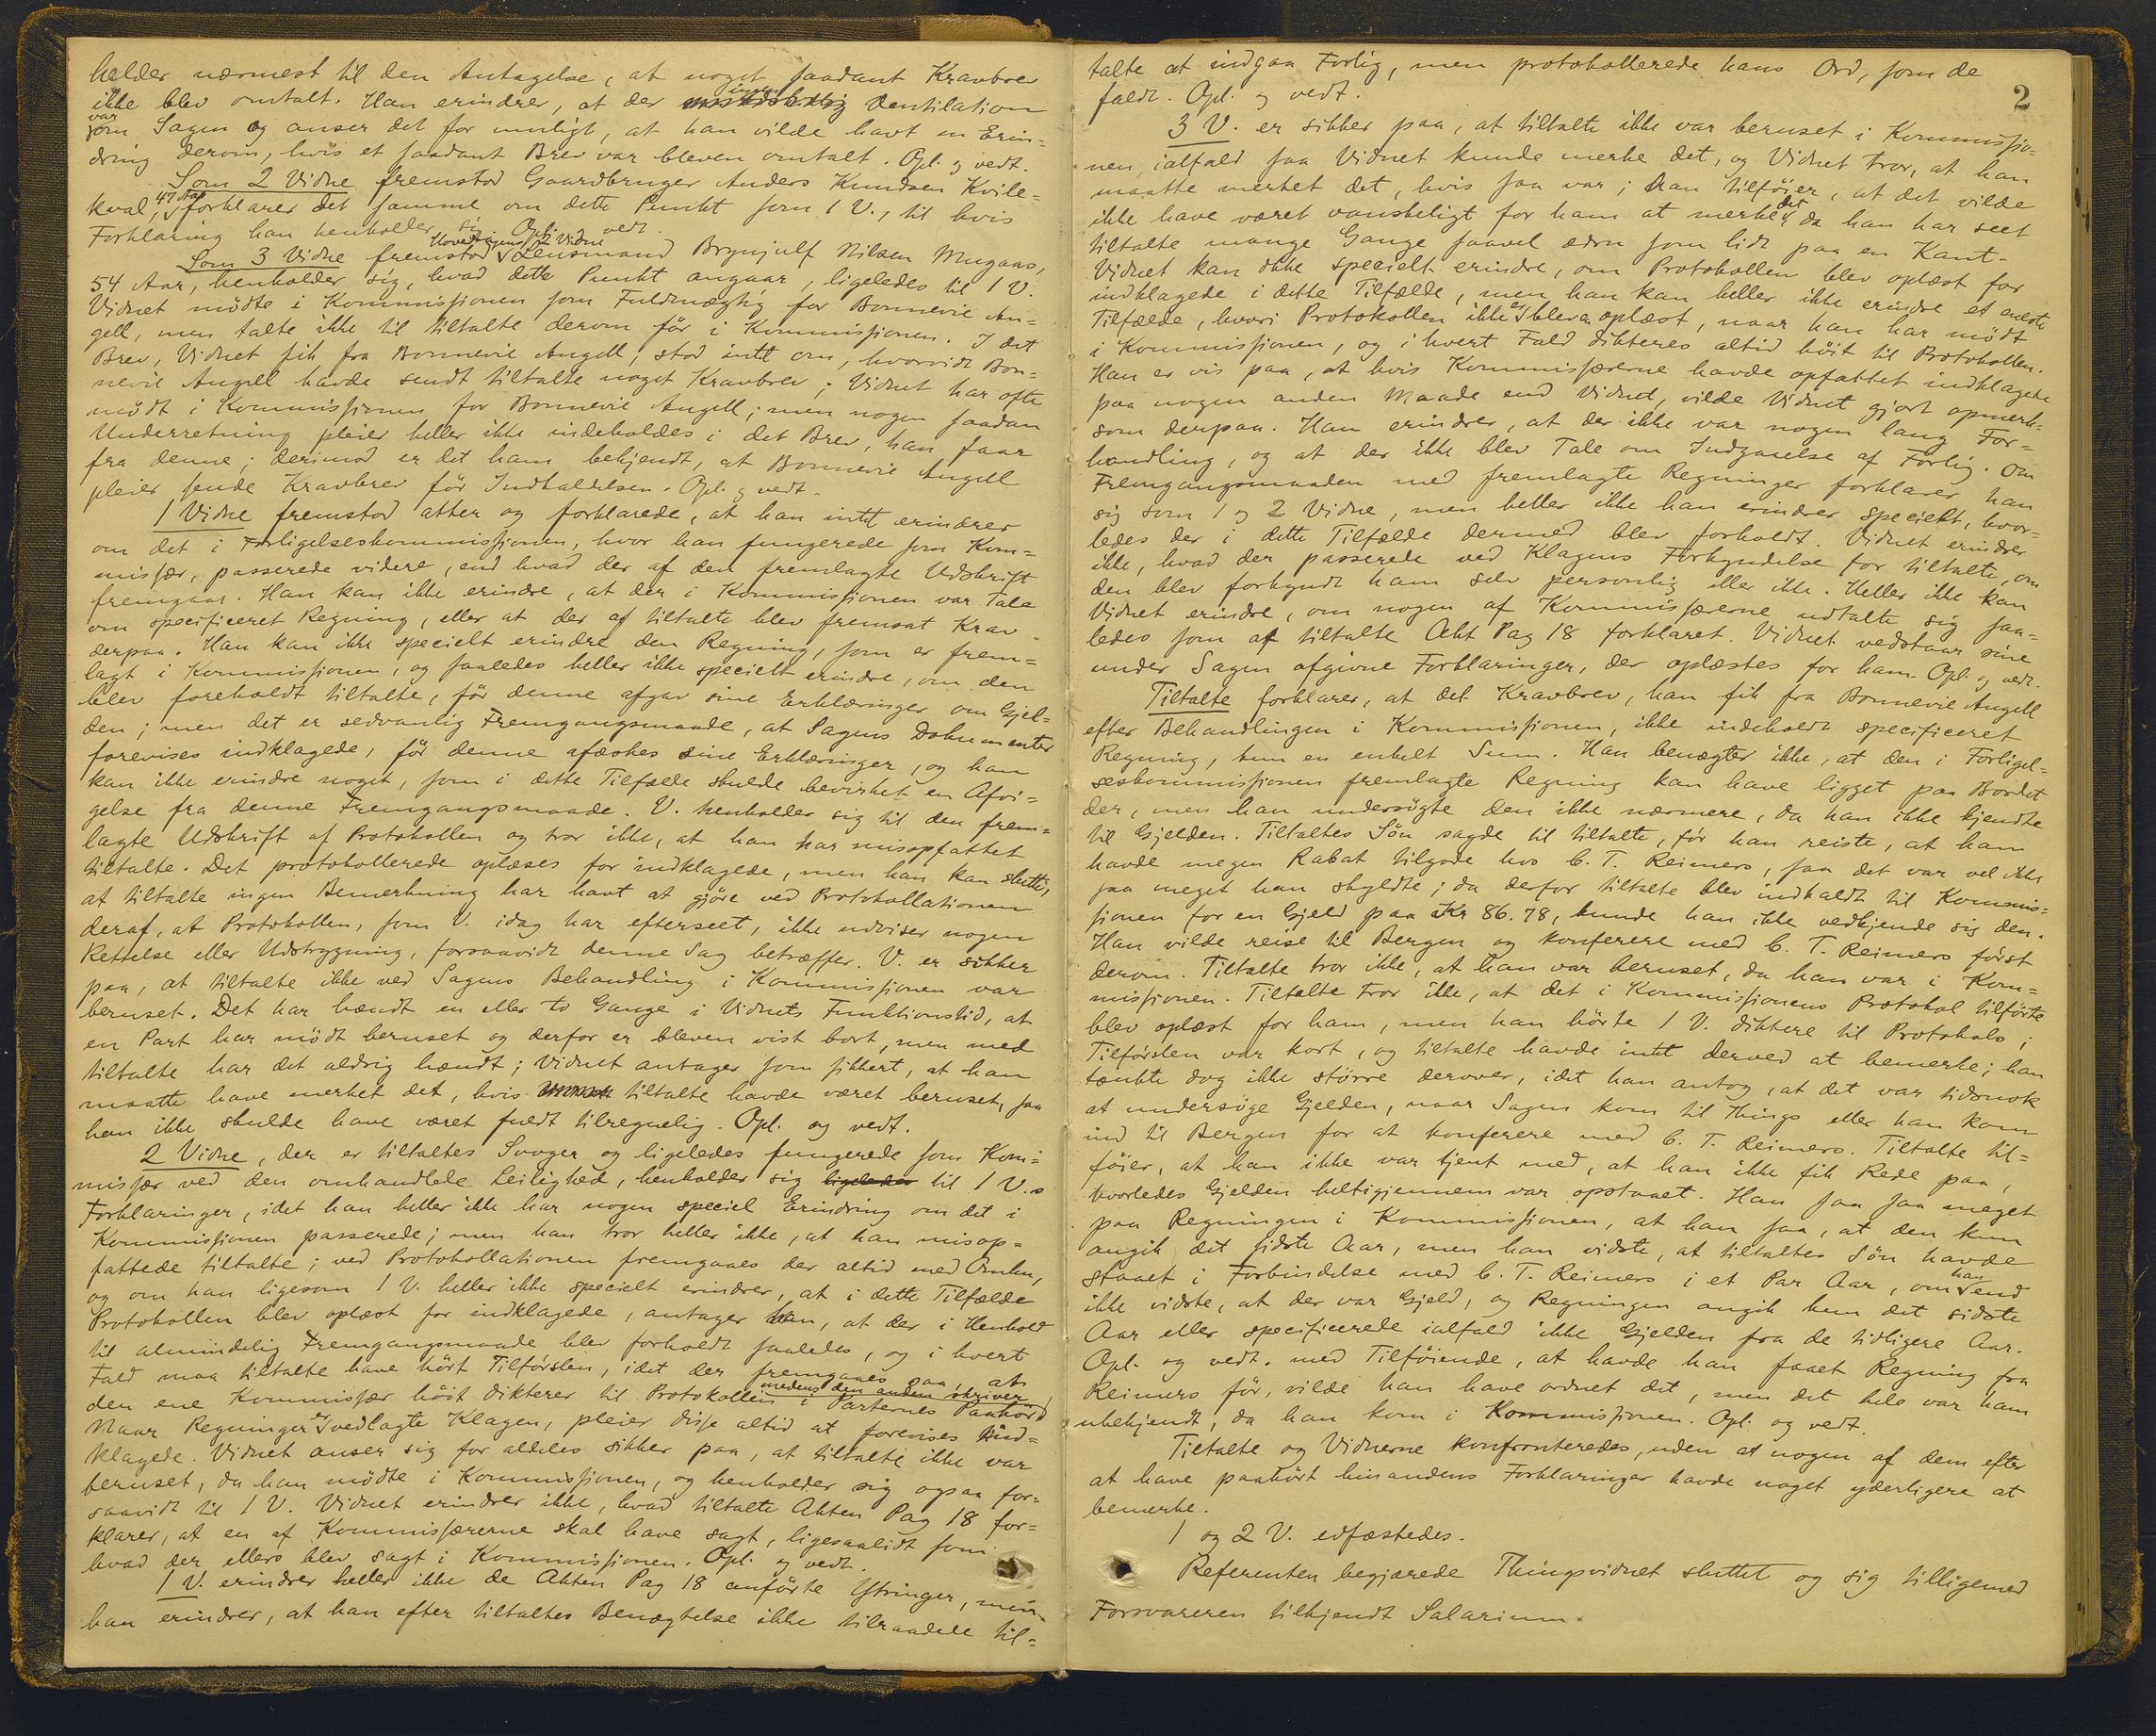 helder nærmest til den Antagelse, at noget saadant Kravbrev
ikke blev omtalt. Han erindrer, at der ingen Ventilation
var
om Sagen og anser det for muligt, at han vilde havt en Erin=
dring derom, hvis et saadant Brev var bleven omtalt. Opl. og vedt.
Som 2 Vidne fremstod Gaardbruger Anders Knudsen Kvile=
kval, 47 Aar, forklarer det samme om dette Punkt som 1 V., til hvis
Forklaring han henholder sig. Opl. og vedt.
Som 3 Vidne fremstod Hovedsagens 2 Vidne Lensmand Brynjulf Nilsen Mugaas,
54 Aar, henholder sig, hvad dette Punkt angaar, ligeledes til 1 V.
Vidnet mödte i Kommissionen som Fuldmægtig for Bonnevie An=
gell, men talte ikke til tiltalte derom för i Kommissionen. I det
Brev, Vidnet fik fra Bonnevie Angell, stod intet om, hvorvidt Bon=
nevie Angell havde sendt tiltalte noget Kravbrev; Vidnet har ofte
mödt i Kommissionen for Bonnevie Angell; men nogen saadan
Underretning pleier heller ikke indeholdes i det Brev, han faar
fra denne; derimod er det ham bekjendt, at Bonnevie Angell
pleier sende Kravbrev för Indkaldelsen. Opl. og vedt.
1 Vidne fremstod atter og forklarede, at han intet erindrer
om det i Forligelseskommissionen, hvor han fungerede som Kom=
missær, passerede videre, end hvad der af den fremlagte Udskrift
fremgaar. Han kan ikke erindre, at der i Kommissionen var Tale
om specificeret Regning, eller at der af tiltalte blev fremsat Krav
derpaa. Han kan ikke specielt erindre den Regning, som er frem=
lagt i Kommissionen, og saaledes heller ikke specielt erindre, om den
blev foreholdt tiltalte, för denne afgav sine Erklæringer om Gjel=
den; men det er sedvanlig Fremgangsmaade, at Sagens Dokumenter
forevises indklagede, för denne afæskes sine Erklæringer, og han
kan ikke erindre noget, som i dette Tilfælde skulde bevirket en Afvi=
gelse fra denne Fremgangsmaade. V. henholder sig til den frem=
lagte Udskrift af Protokollen og tror ikke, at han har misopfattet
tiltalte. Det protokollerede oplæses for indklagede, men han kan slutte,
at tiltalte ingen Bemerkning har havt at gjöre ved Protokollationen
deraf, at Protokollen, som V. idag har efterseet, ikke udviser nogen
Rettelse eller Udstrygning, forsaavidt denne Sag betræffer. V. er sikker
paa, at tiltalte ikke ved Sagens Behandling i Kommissionen var
beruset. Det har hændt en eller to Gange i Vidnets Funktionstid, at
en Part har mödt beruset og derfor er bleven vist bort, men med
tiltalte har det aldrig hændt; Vidnet antager som sikkert, at han
maatte have merket det, hvis tiltalte havde været beruset, saa
han ikke skulde have været fuldt tilregnelig. Opl. og vedt.
2 Vidne, der er tiltaltes Svoger og ligeledes fungerede som Kom=
missær ved den omhandlede Leilighed, henholder sig ligeledes til 1 V.s
Forklaringer, idet han heller ikke har nogen speciel Erindring om det i
Kommissionen passerede; men han tror heller ikke, at han misop=
fattede tiltalte; ved Protokollationen fremgaaes der altid med Omhu,
og om han ligesom 1 V. heller ikke specielt erindrer, at i dette Tilfælde
Protokollen blev oplæst for indklagede, antager han, at der i Henhold
til almindelig Fremgangsmaade blev forholdt saaledes, og i hvert
Fald maa tiltalte have hört Tilförslen, idet der fremgaaes saa, at
den ene Kommissær höit dikterer til Protokollen medens den anden skriver i Parternes Paahör.
Naar Regninger er vedlagte Klagen, pleier disse altid at forevises ind=
klagede. Vidnet anser sig for aldeles sikker paa, at tiltalte ikke var
beruset, da han mödte i Kommissionen, og henholder sig ogsaa for=
saavidt til 1 V. Vidnet erindrer ikke, hvad tiltalte Akten Pag 18 for=
klarer, at en af Kommissærerne skal have sagt, ligesaalidt som
hvad der ellers blev sagt i Kommissionen. Opl. og vedt.
1 V. erindrer heller ikke de Akten Pag 18 anförte Ytringer, men
han erindrer, at han efter tiltaltes Benægtelse ikke tilraadede til=
2
talte at indgaa Forlig, men protokollerede hans Ord, som de
faldt. Opl. og vedt.
3 V. er sikker paa, at tiltalte ikke var beruset i Kommissio=
nen, ialfald saa Vidnet kunde merke det, og Vidnet tror, at han
maatte merket det, hvis saa var; han tilföier, at det vilde
ikke have været vanskeligt for ham at merke det, da han har seet
tiltalte mange Gange saavel ædru som lidt paa en Kant.
Vidnet kan ikke specielt erindre, om Protokollen blev oplæst for
indklagede i dette Tilfælde, men han kan heller ikke erindre et eneste
Tilfælde, hvori Protokollen ikke er bleven oplæst, naar han har mödt
i Kommissionen, og i hvert Fald dikteres altid höit til Protokollen.
Han er vis paa, at hvis Kommissærerne havde opfattet indklagede
paa nogen anden Maade end Vidnet, vilde Vidnet gjort opmerk=
som derpaa. Han erindrer, at der ikke var nogen lang For=
handling, og at der ikke blev Tale om Indgaaelse af Forlig. Om
Fremgangsmaaden med fremlagte Regninger forklarer han
sig som 1 og 2 Vidne, men heller ikke han erindrer specielt, hvor=
ledes der i dette Tilfælde dermed blev forholdt. Vidnet erindrer
ikke, hvad der passerede ved Klagens Forkyndelse for tiltalte, om
den blev forkyndt ham selv personlig eller ikke. Heller ikke kan
Vidnet erindre, om nogen af Kommissærerne udtalte sig saa=
ledes som af tiltalte Akt Pag 18 forklaret. Vidnet vedstaar sine
under Sagen afgivne Forklaringer, der oplæstes for ham. Opl. og vedt.
Tiltalte forklarer, at det Kravbrev, han fik fra Bonnevie Angell
efter Behandlingen i Kommissionen, ikke indeholdt specificeret
Regning, kun en enkelt Sum. Han benægter ikke, at den i Forligel=
seskommissionen fremlagte Regning kan have ligget paa Bordet
der, men han undersögte den ikke nærmere, da han ikke kjendte
til Gjelden. Tiltaltes Sön sagde til tiltalte, för han reiste, at han
havde megen Rabat tilgode hos C. T. Reimers, saa det var vel ikke
saa meget han skyldte; da derfor tiltalte blev indkaldt til Kommis=
sionen for en Gjeld paa Kr 86.78, kunde han ikke vedkjende sig den.
Han vilde reise til Bergen og konferere med C. T. Reimers först
derom. Tiltalte tror ikke, at han var beruset, da han var i Kom=
missionen. Tiltalte tror ikke, at det i Kommissionens Protokol tilförte
blev oplæst for ham, men han hörte 1 V. diktere til Protokols;
Tilförslen var kort, og tiltalte havde intet derved at bemerke; han
tænkte dog ikke större derover, idet han antog, at det var tidsnok
at undersöge Gjelden, naar Sagen kom til Things eller han kom
ind til Bergen for at konferere med C. T. Reimers. Tiltalte til=
föier, at han ikke var tjent med, at han ikke fik Rede paa,
hvorledes Gjelden heltigjennem var opstaaet. Han saa saa meget
paa Regningen i Kommissionen, at han saa, at den kun
angik det sidste Aar, men han vidste, at tiltaltes Sön havde
staaet i Forbindelse med C. T. Reimers i et Par Aar, om han end
ikke vidste, at der var Gjeld, og Regningen angik kun det sidste
Aar eller specificerede ialfald ikke Gjelden fra de tidligere Aar.
Opl. og vedt. med Tilföiende, at havde han faaet Regning fra
Reimers för, vilde han have ordnet det, men det hele var ham
ubekjendt, da han kom i Kommissionen. Opl. og vedt.
Tiltalte og Vidnerne konfronteredes, uden at nogen af dem efter
at have paahört hinandens Forklaringer havde noget yderligere at
bemerke.
1 og 2 V. edfæstedes.
Referenten begjærede Thingsvidnet sluttet og sig tilligemed
Forsvareren tilkjendt Salarium.